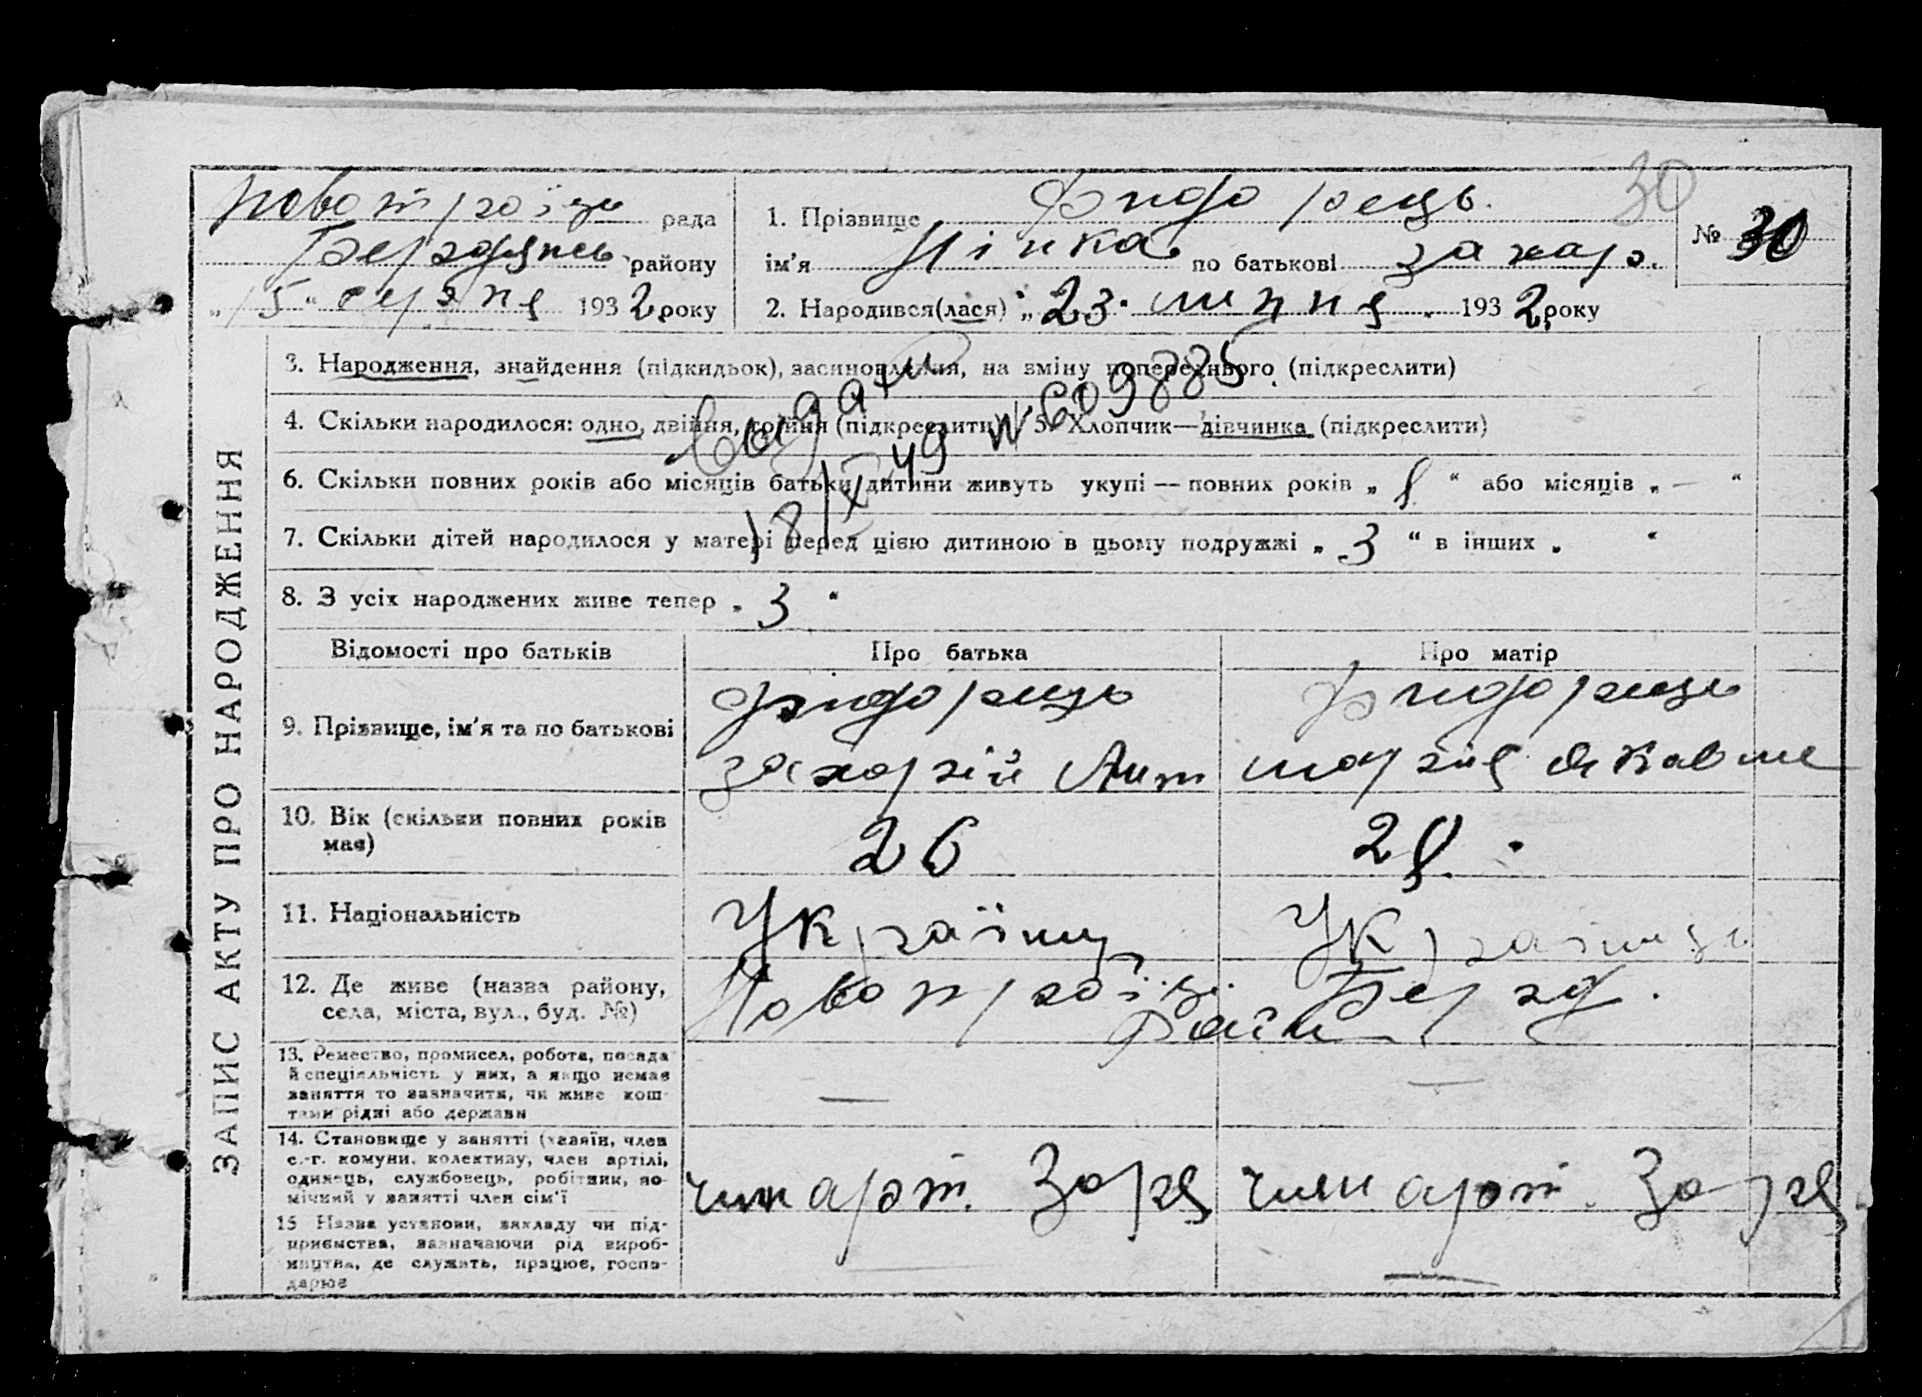 30
Новотроїць рада
Бердянсь району
„15“ серпня 1932 року
1. Прізвище Фидорець.
ім'я Нінка по батькові Захар.
№ 30
2. Народився(лася) „23“ липня 1932 року
ЗАПИС АКТУ ПРО НАРОДЖЕННЯ
3. Народження, знайдення (підкидьок), засиновлення, на зміну попереднього (підкреслити)
4. Скільки народилося: одно, двійня, тройня (підкреслити) 5. Хлопчик—дівчинка (підкреслити)
18/XI 49 № 609885
6. Скільки повних років або місяців батьки дитини живуть укупі — повних років „8“ або місяців „—“
7. Скільки дітей народилося у матері перед цією дитиною в цьому подружжі „3“ в інших „ “
8. З усіх народжених живе тепер „3“
Відомості про батьків Про батька Про матір
9. Прізвище, ім'я та по батькові
Фидорець
Захарій Ант
Фидорець
Марія
10. Вік (скільки повних років
має)
26
28.
11. Національність
Українц
Українци
12. Де живе (назва району,
села, міста, вул., буд. №)
Новотроїц. Берд.
Район
13. Ремество, промисел, робота, посада
й спеціяльність у них, а якщо немає
заняття то зазначити, чи живе кош-
тами рідні або держави
—
—
14. Становище у занятті (хазяїн, член
с.-г. комуни, колективу, член артілі,
одинець, службовець, робітник, по-
мічний у занятті член сім'ї
член арт. Заря
член арт. Заря
15 Назва установи, закладу чи під-
приємства, зазначаючи рід вироб-
ництва, де служить, працює, госпо-
дарює
—
—